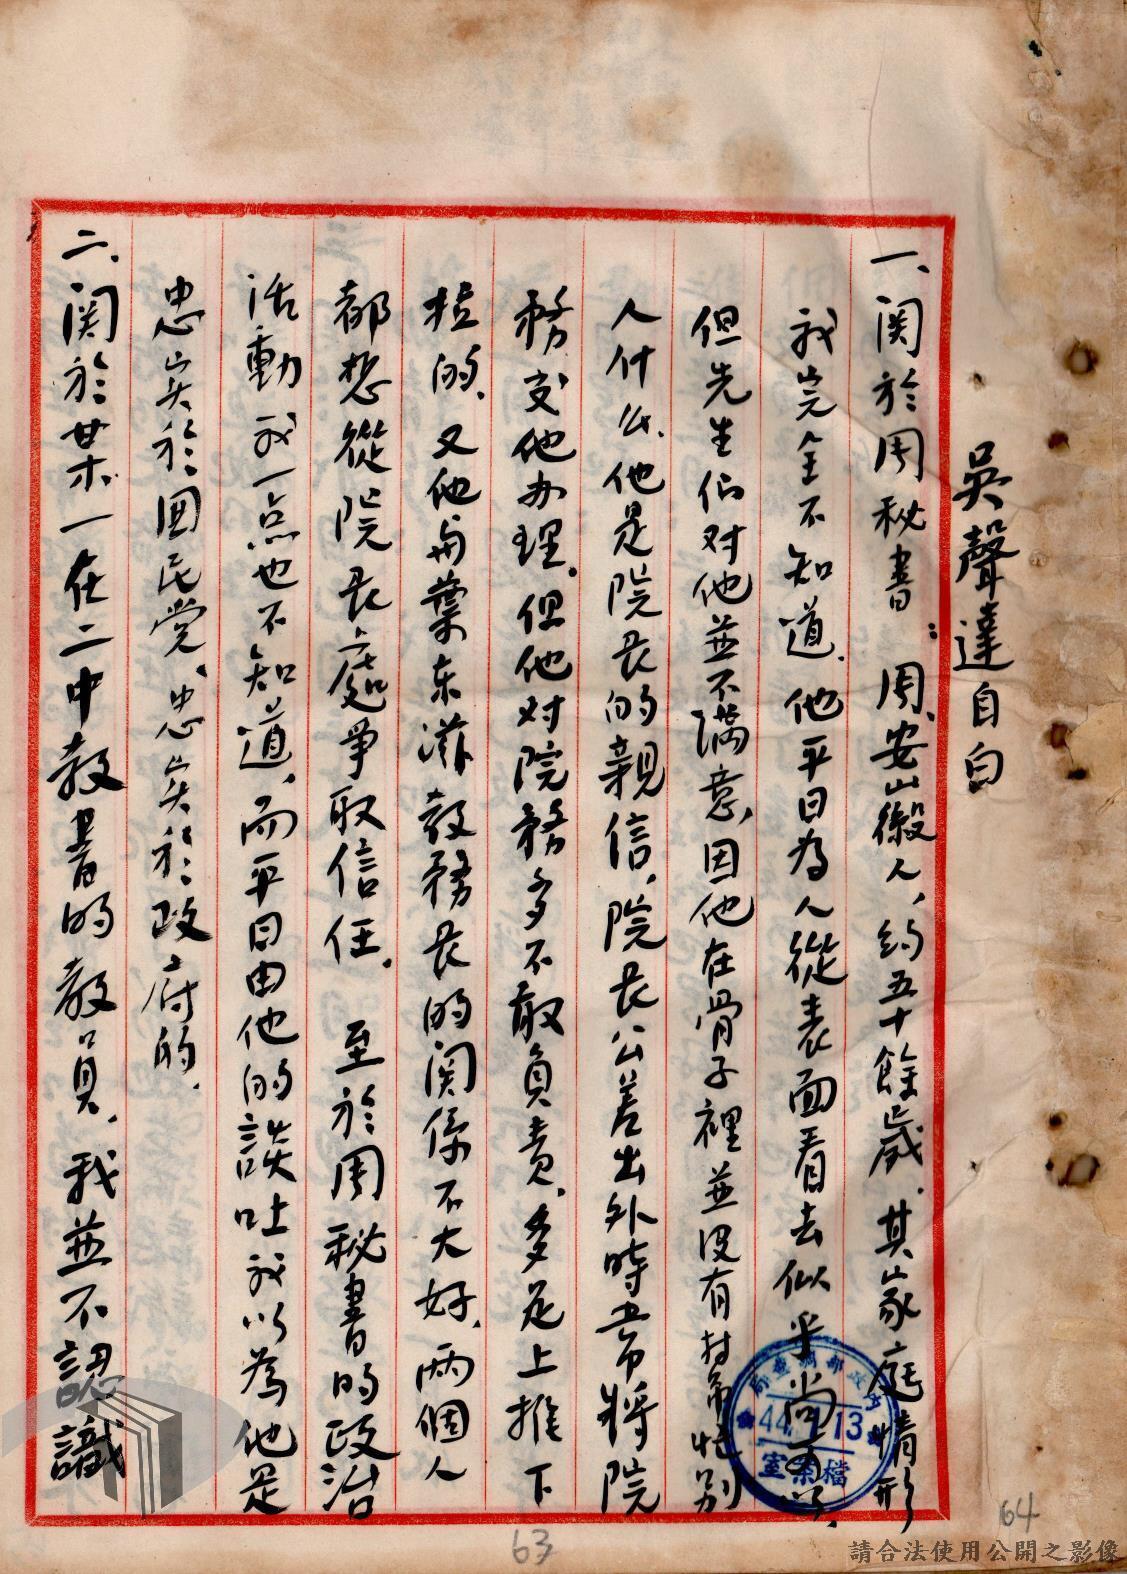 吳聲達自白
一、関於周秘書：周、安山徽人，約五十餘歲，其家庭情形
我完全不知道，他平日為人從表面看去似乎尚可以，
但先生们对他並不满意，因他在骨子裡並没有特別
人什么，他是院長的親信，院長公差出外時常將院
務交他办理，但他对院務多不敢負責，多是上推下
拉的，又他与葉东滋教務長的関係不大好，兩個人
都想從院長處爭取信任。至於周秘書的政治
活動我一点也不知道，而平日由他的談吐我以為他是
忠实於国民党、忠实於政府的。
二、関於某一在二中教書的教員，我並不認識
內政部調查局
44. 13
檔案室
63
64
請合法使用公開之影像